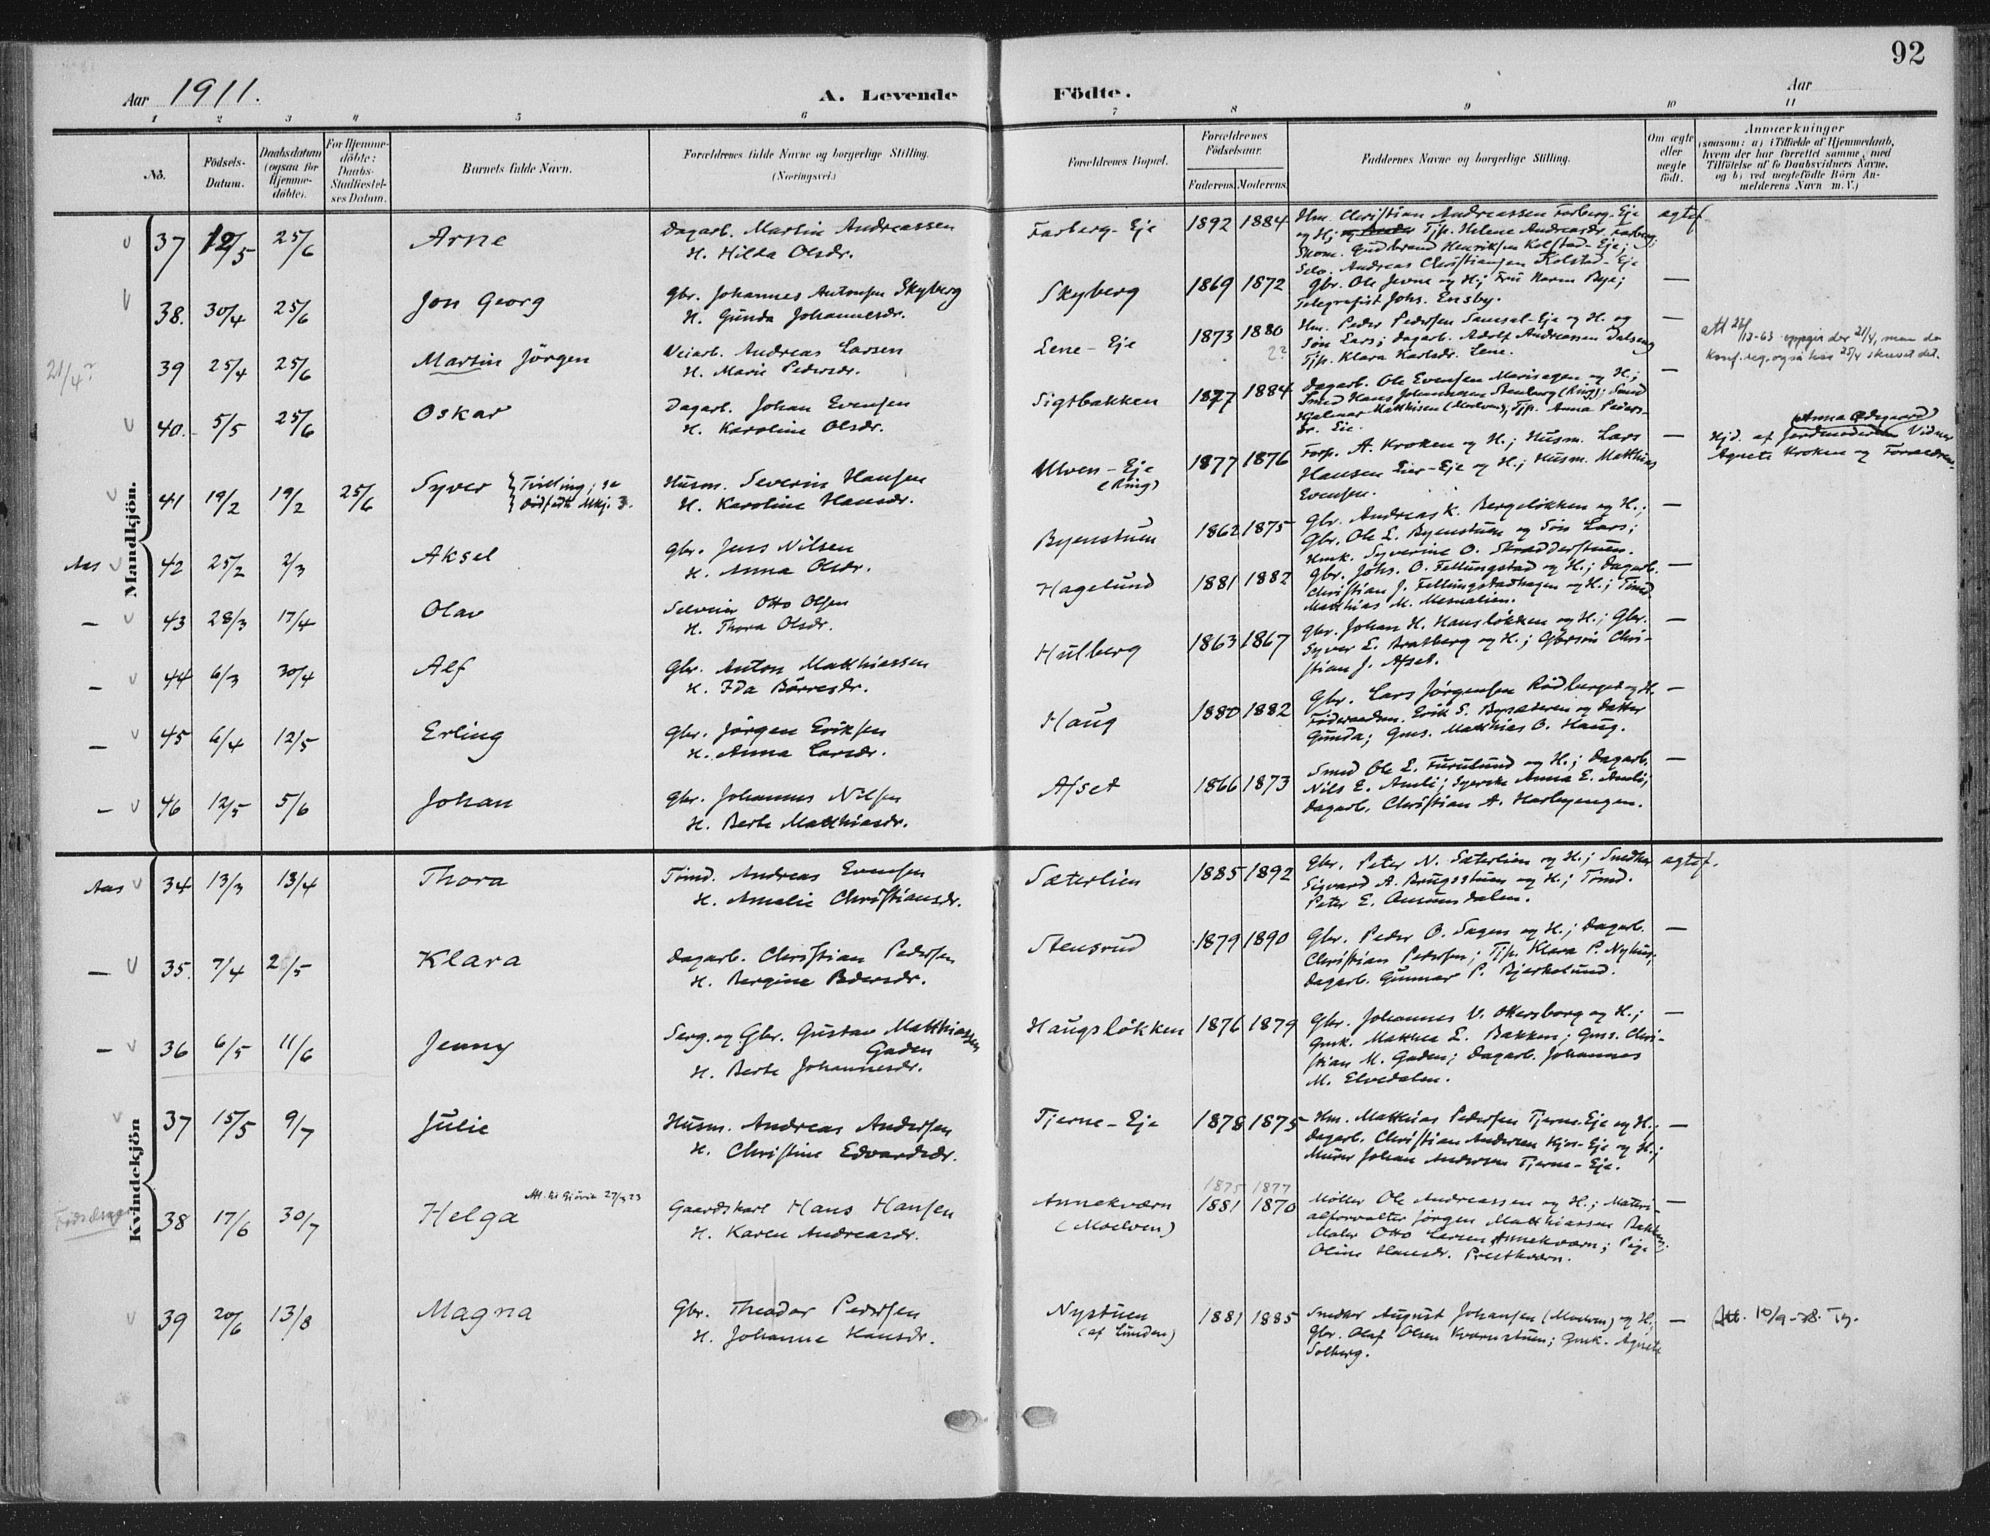 92
Aar 1911.
A. Levende
Födte.
Aar
1 2 3 4 5 6 7 8 9 10 11
No.
Födsels-Datum.
Daabsdatum (ogsaa for Hjemmedöbte).
For Hjemmedöbte: Daabs-Stadfæstelses Datum.
Barnets fulde Navn.
Forældrenes fulde Navne og borgerlige Stilling. (Næringsvei.)
Forældrenes Bopæl.
Forældrenes Födselsaar.
Faderens. Moderens.
Faddernes Navne og borgerlige Stilling.
Om ægte eller uægte födt.
Anmærkninger
(saasom: a) i Tilfælde af Hjemmedaab, hvem der har forrettet samme, med Tilföielse af to Daabsvidners Navne, og b) ved uægtefödte Börn Anmelderens Navn m. V.)
Mandkjön.
37 12/5 25/6 Arne
Dagarb. Martin Andreassen
H. Hilda Olsdr.
Farberg-Eje 1892 1884
Hm. Christian Andreassen Farberg-Eje
og H; Tjp. Helene Andreasdr. Farberg;
Skom. Gudbrand Henriksen Kolstad-Eje;
Selv. Andreas Christiansen Kolstad-Eje
ægtef.
38. 30/4 25/6 Jon Georg
Gbr. Johannes Antonsen Skyberg
H. Gunda Johannesdr.
Skyberg 1869 1872
Gbr. Ole Jevne og H; Fru Karen Bye;
Telegrafist Johs. Ensby.
—
21/4?
39 25/4 25/6 Martin Jörgen
Veiarb. Andreas Larsen
H. Marie Pedersdr.
Lene-Eje 1873 1880
2?
Hm. Peder Pedersen Samsal-Eje og H. og
Søn Lars; Dagarb. Adolf Andreassen Dalseng
Tjp. Klara Karlsdr. Lene.
—
att 22/12-63 oppgir der 21/4, men da
konf.reg. også har 25/4 skrevet det.
40. 5/5 25/6 Oskar
Dagarb. Johan Evensen
H. Karoline Olsdr.
Sigtbakken 1877 1884
Dagarb. Ole Evensen Marisagen og H;
Smed Hans Johannesen Stenberg (Ring); Smed
Hjalmar Matthisen (Moelven); Tjp. Anna Peders-
dr. Lie.
—
41 19/2 19/2 25/6 Syver
Tvilling; se
Dødfødte Mkj. 3.
Husm. Severin Hansen
H. Karoline Hansdr.
Ulven-Eje
(Ring)
1877 1876
Forp. A. Kroken og H.; Husm. Lars
Hansen Lier-Eje og H.; Husm. Matthias
Evensen.
—
(Anna Ødegaard)
Hjd. af Jordmoderen Vidner
Agnete Kroken og Forældrene
Aas 42 25/2 2/3 Aksel
Gbr. Jens Nilsen
H. Anna Olsdr.
Byenstuen 1862 1875
Gbr. Andreas K. Bergeløkken og H.;
Gbr. Ole L. Byenstuen og Søn Lars;
Gmk. Syverine O. Skrædderstuen.
—
— 43 28/3 17/4 Olav
Selveier Otto Olsen
H. Thora Olsdr.
Hagelund 1881 1882
Gbr. Johs. O. Fellungstad og H.; Dagarb.
Christian J. Fellungstadhagen og H.; Tømd.
Matthias M. Mesnalien.
—
— 44 6/3 30/4 Alf
Gbr. Anton Matthiassen
H. Ida Börresdr.
Hulberg 1863 1867
Gbr. Johan H. Hansløkken og H.; Gbr.
Syver L. Bratberg og H.; Gbrsøn Chri-
stian J. Afset.
—
— 45 6/4 12/5 Erling
Gbr. Jörgen Eriksen
H. Anna Larsdr.
Haug 1880 1882
Gbr. Lars Jørgensen Rødberget og H.
Føderaadsm. Erik S. Bysæteren og Datter
Gunda; Gms. Matthias O. Haug.
—
— 46 12/5 5/6 Johan
Gbr. Johannes Nilsen
H. Berte Matthiasdr.
Afset 1866 1873
Smed Ole L. Furulund og H.; Dagarb.
Nils E. Amli; Syerske Anna E. Amli;
Dagarb. Christian A. Harbyengen.
—
Kvindekjön
Aas 34 13/3 13/4 Thora
Tømd. Andreas Evensen
H. Amalie Christiansdr.
Sæterlien 1885 1892
Gbr. Peter N. Sæterlien og H.; Snedker
Sigvard A. Brugsstuen og H.; Tømd.
Peter E. Amunddalen.
ægtef.
— 35. 7/4 2/5 Klara
Dagarb. Christian Pedersen
H. Bergine Pedersdr.
Stensrud 1879 1890
Gbr. Peder O. Sagen og H.; Dagarb.
Christian Pedersen; Tjp. Klara P. Nyhus;
Dagarb. Gunnar P. Bjerkelund.
—
— 36 6/5 11/6 Jenny
Serg. og Gbr. Gustav Matthiassen
Gaden
H. Berte Johannesdr.
Haugsløkken 1876 1879
Gbr. Johannes U. Okersborg og H.;
Gmk. Mathea L. Bakken; Gms. Chri-
stian M. Gaden; Dagarb. Johannes
M. Elvedalen.
—
37 15/5 9/7 Julie
Husm. Andreas Andersen
H. Christine Edvardsdr.
Tjerne-Eje 1878 1875
Hm. Mathias Pedersen Tjerne-Eje og H.;
Dagarb. Christian Andersen Kjos-Eje og H.;
Murer Johan Andersen Tjerne-Eje.
—
38 17/6 30/7 Helga
Att. til Gjövik 27/3 23
Gaardskarl Hans Hansen
H. Karen Andreasdr.
Annekværn
(Moelven)
1875 1877
1881 1870
Møller Ole Andreassen og H.; Materi-
alforvalter Jørgen Matthiassen Bakken;
Maler Otto Larsen Annekværn; Pige
Oline Hansdr. Prestkværn.
—
39 20/6 13/8 Magna
Gbr. Theodor Pedersen
H. Johanne Hansdr.
Nystuen
(af Lunden)
1881 1885
Snedker August Johansen (Moelven) og H;
Gbr. Olaf Olsen Kværnstuen; Gmk. Agnete
Solberg.
—
Att. 18/9-78